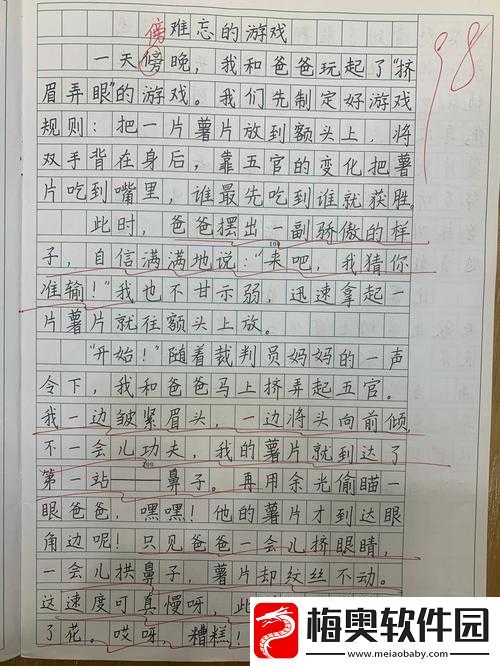 傍
难忘的游戏
98
一天傍晚，我和爸爸玩起了“挤
眉弄眼”的游戏。我们先制定好游戏
规则：把一片薯片放到额头上，将
双手背在身后，靠五官的变化把薯
片吃到嘴里，谁最先吃到谁就获胜。
此时，爸爸摆出一副骄傲的样
100
子，自信满满地说：“来吧，我猜你
准输！”我也不甘示弱，迅速拿起一
片薯片就往额头上放。
“开始！”随着裁判员妈妈的一声
令下，我和爸爸马上挤弄起五官。
我一边皱紧眉头，一边将头向前倾，
不一会儿功夫，我的薯片就到达了
200
第一站——鼻子。再用余光偷瞄一
眼爸爸，嘿嘿！他的薯片才到达眼
角边呢！只见爸爸一会儿挤眼睛，
一会儿拱鼻子，薯片却纹丝不动。
这速度可真慢呀，此
了花。哎呀，糟糕！
梅奥软件园
www.meiaobaby.com